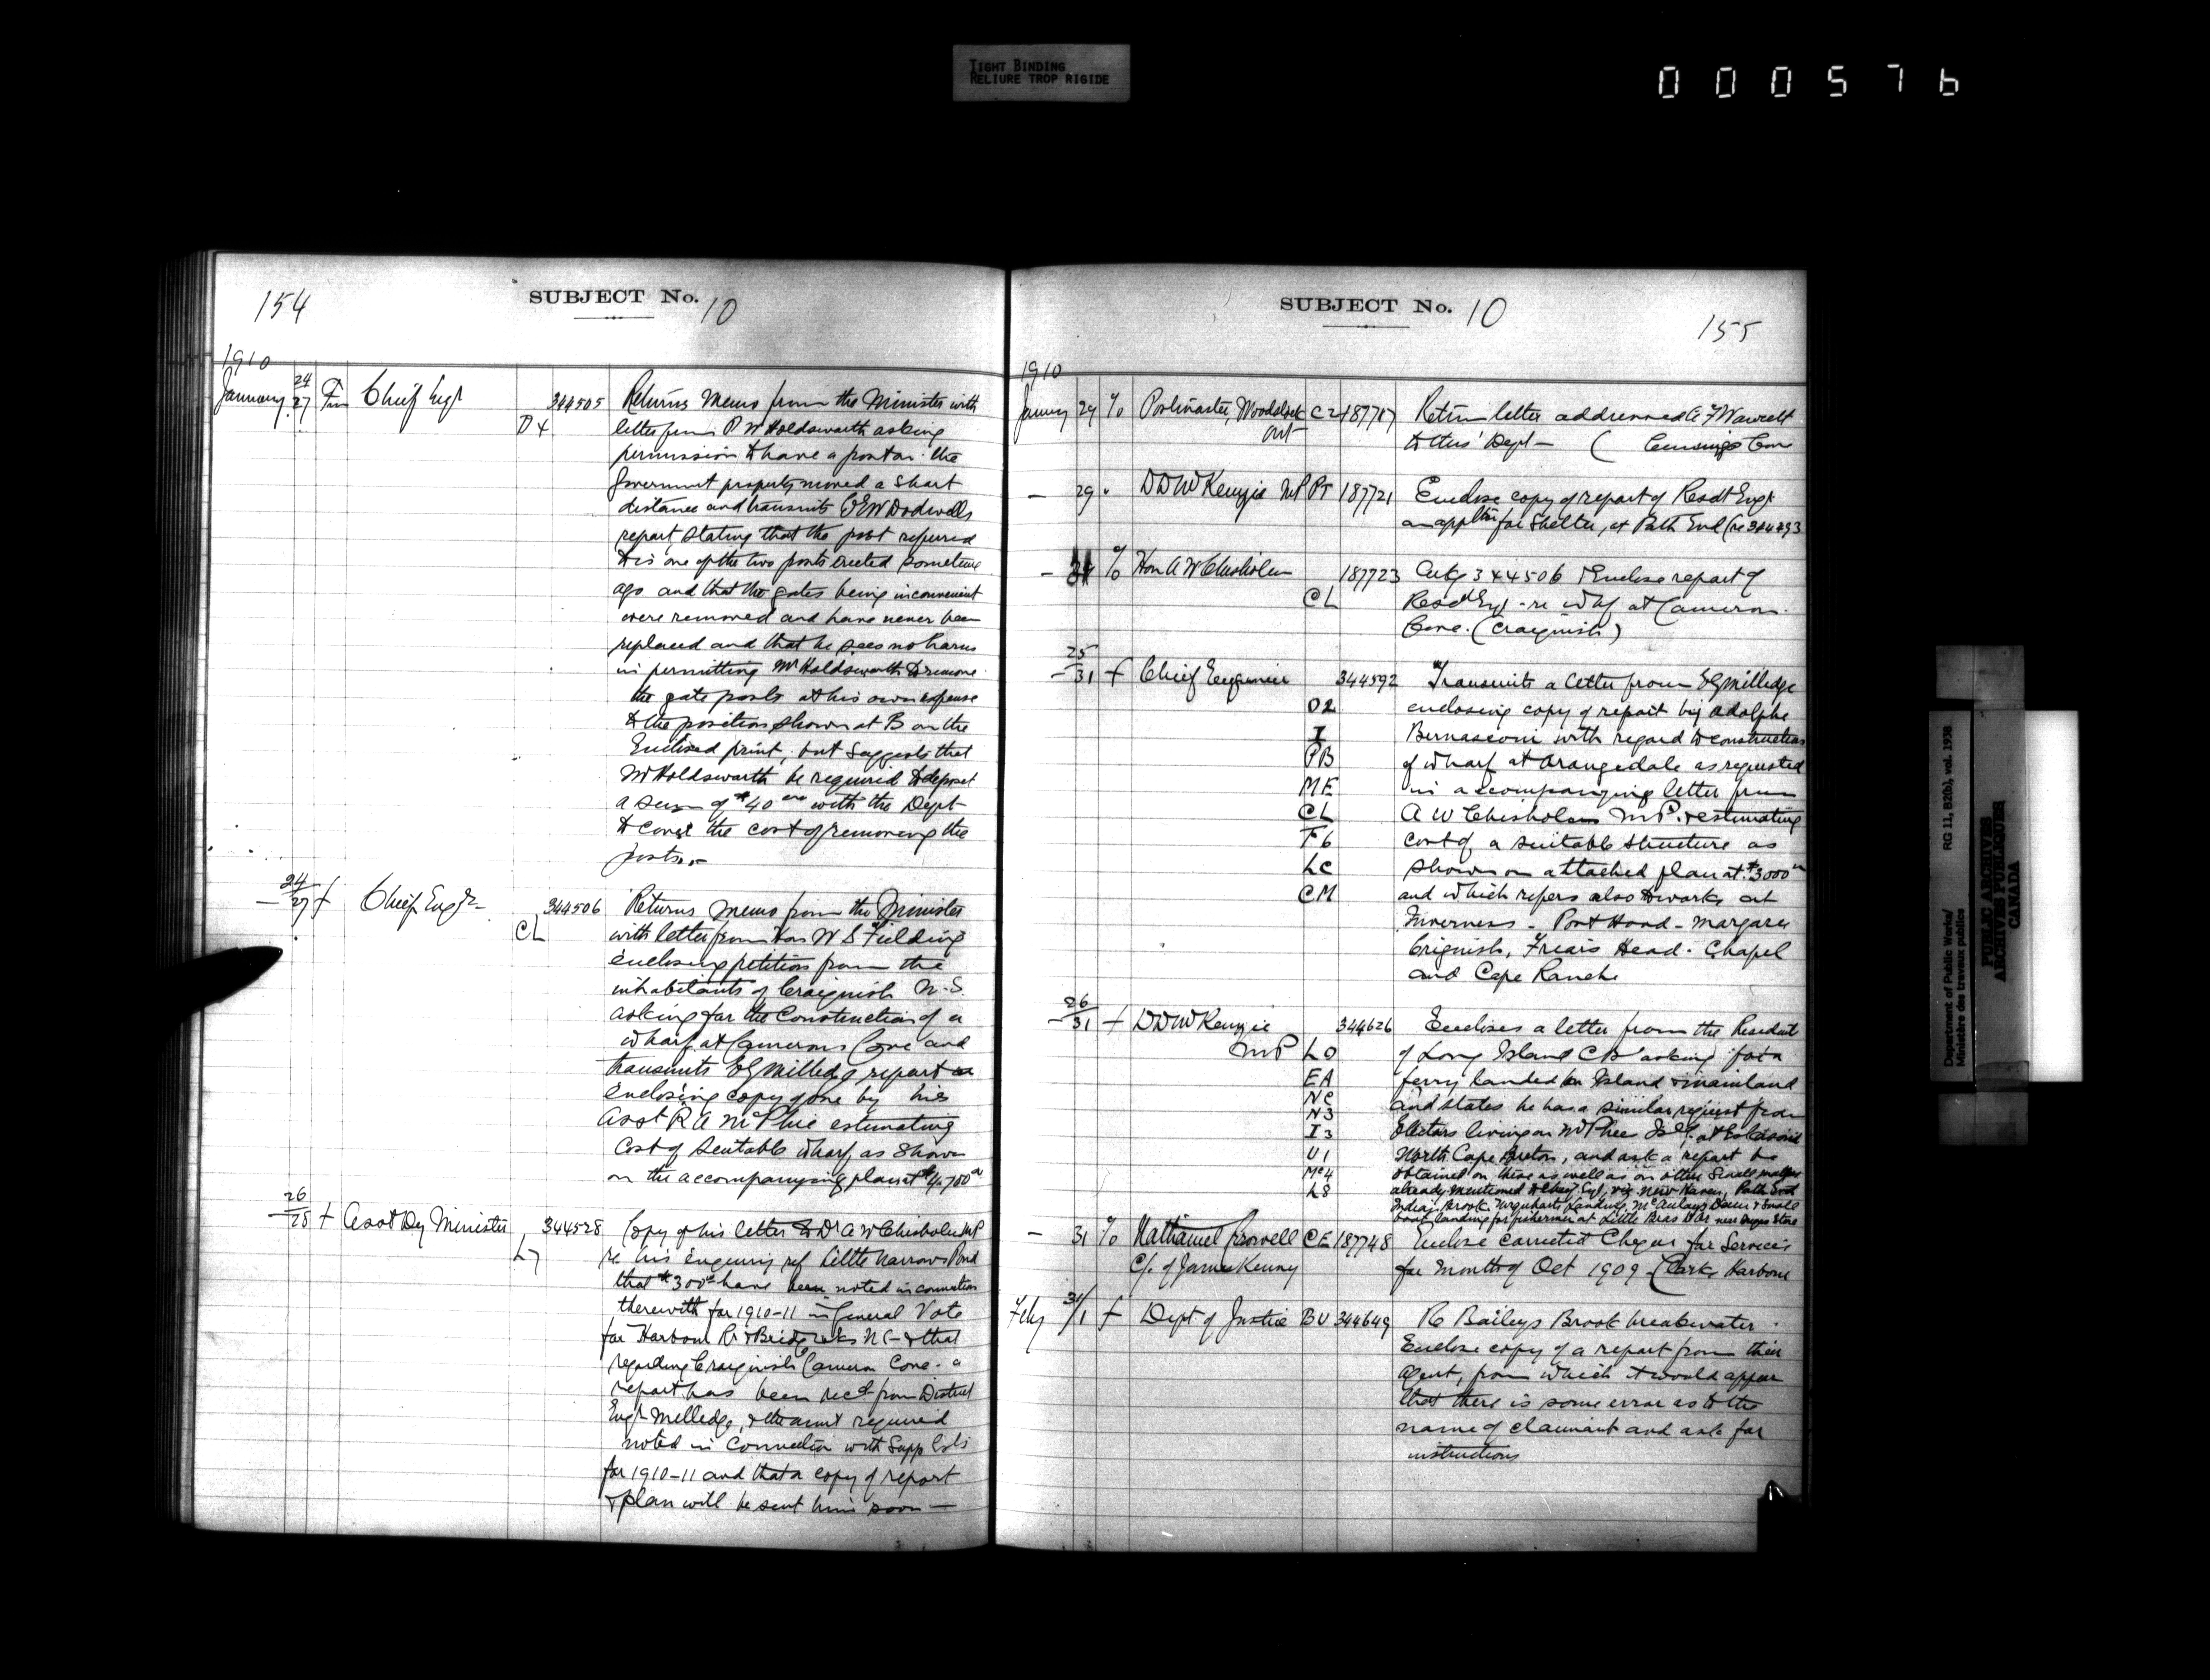 TIGHT BINDING
RELIURE TROP RIGIDE
000576
154
SUBJECT No. 10
1910
January 24/27 Fm Chief Engr 344505 Returns Memo from the Minister with
D4 letter from P W Holdsworth asking
permission to have a post on the
Government property moved a short
distance and transmits C E W Dodwells
report stating that the post referred
to is one of the two posts erected sometime
ago and that the gates being inconvenient
were removed and have never been
replaced and that he sees no harm
in permitting Mr Holdsworth to remove
the gate posts at his own expense
to the position shown at B on the
Enclosed print, but suggests that
Mr Holdsworth be required to deposit
a sum of $40 with the Dept
to cover the cost of removing the
posts.
24/27 f Chief Engr 344506 Returns memo from the Minister
CL with letter from Hon W S Fielding
enclosing petition from the
inhabitants of Craignish N.S.
asking for the Construction of a
wharf at Camerons Cove and
transmits E G Milledge report
enclosing copy of one by his
asst R A McPhie estimating
Cost of Suitable wharf, as shown
on the accompanying plan at $4,700
26/28 f Asst Dy Minister 344528 Copy of his letter to Dr A W Chisholm MP
L7 re his enquiry ref Little Narrows Pond
that $300 have been noted in connection
therewith for 1910-11 in General Vote
for Harbour R & Bridge wks NS & that
regarding Craignish Cameron Cove a
report has been recd from District
Engr Milledge, & the amt required
noted in Connection with Supp Ests
for 1910-11 and that a copy of report
& plan will be sent him soon —
SUBJECT No. 10
155
1910
January 29 % Postmaster, Woodstock C2 187717 Return letter addressed
Ont to this Dept — (
— 29 " D D McKenzie MP PT 187721 Enclose copy of report of Resdt Engr
on for Shelter, at Path End (re
% Hon A W Chisholm 187723 Ackg 344506 & Enclose report of
CL Resdt Engr re whf at Cameron
Cove. (Craignish)
25/31 f Chief Engineer 344592 Transmits a letter from E G Milledge
D2 enclosing copy of report by Adolphe
I Bernasconi with regard to construction
PB of wharf at Orangedale as requested
ME in accompanying letter from
CL A W Chisholm M.P. & estimating
F6 cost of a suitable structure as
LC shown on attached plan at $3000
CM and which refers also to works at
Inverness - Port Hood - Margaree
Criginish, Friars Head - Chapel
and Cape Ranche
26/31 f D D McKenzie 344626 Encloses a letter from the Resident
MP LO of Long Island C B asking for a
EA ferry landed on Island & mainland
NC and states he has a similar request from
N3 Electors living on McPhees Isld, at Eskasoni
I3
U1 North Cape Breton, and ask a report be
Mc4 obtained on these as well as on other Small matters
L8 already mentioned to Chief Engr, viz New Haven, Path End
Indian Brook, Urquharts Landing, McAulays & Small
boat landing for fishermen at Little Bras D'Or near Store
— 31 % Nathaniel Crowell CE 187748 Enclose corrected Cheque for Services
C/o of James Kenny for Month of Oct 1909 - (Clarks Harbour
Feby 31/1 f Dept of Justice BU 344649 Re Baileys Brook breakwater
Enclose copy of a report from their
Agent, from which it would appear
that there is some error as to the
name of claimant and ask for
instructions
Department of Public Works/ RG 11, B2(b), vol. 1938
Ministère des travaux publics
PUBLIC ARCHIVES
ARCHIVES PUBLIQUES
CANADA